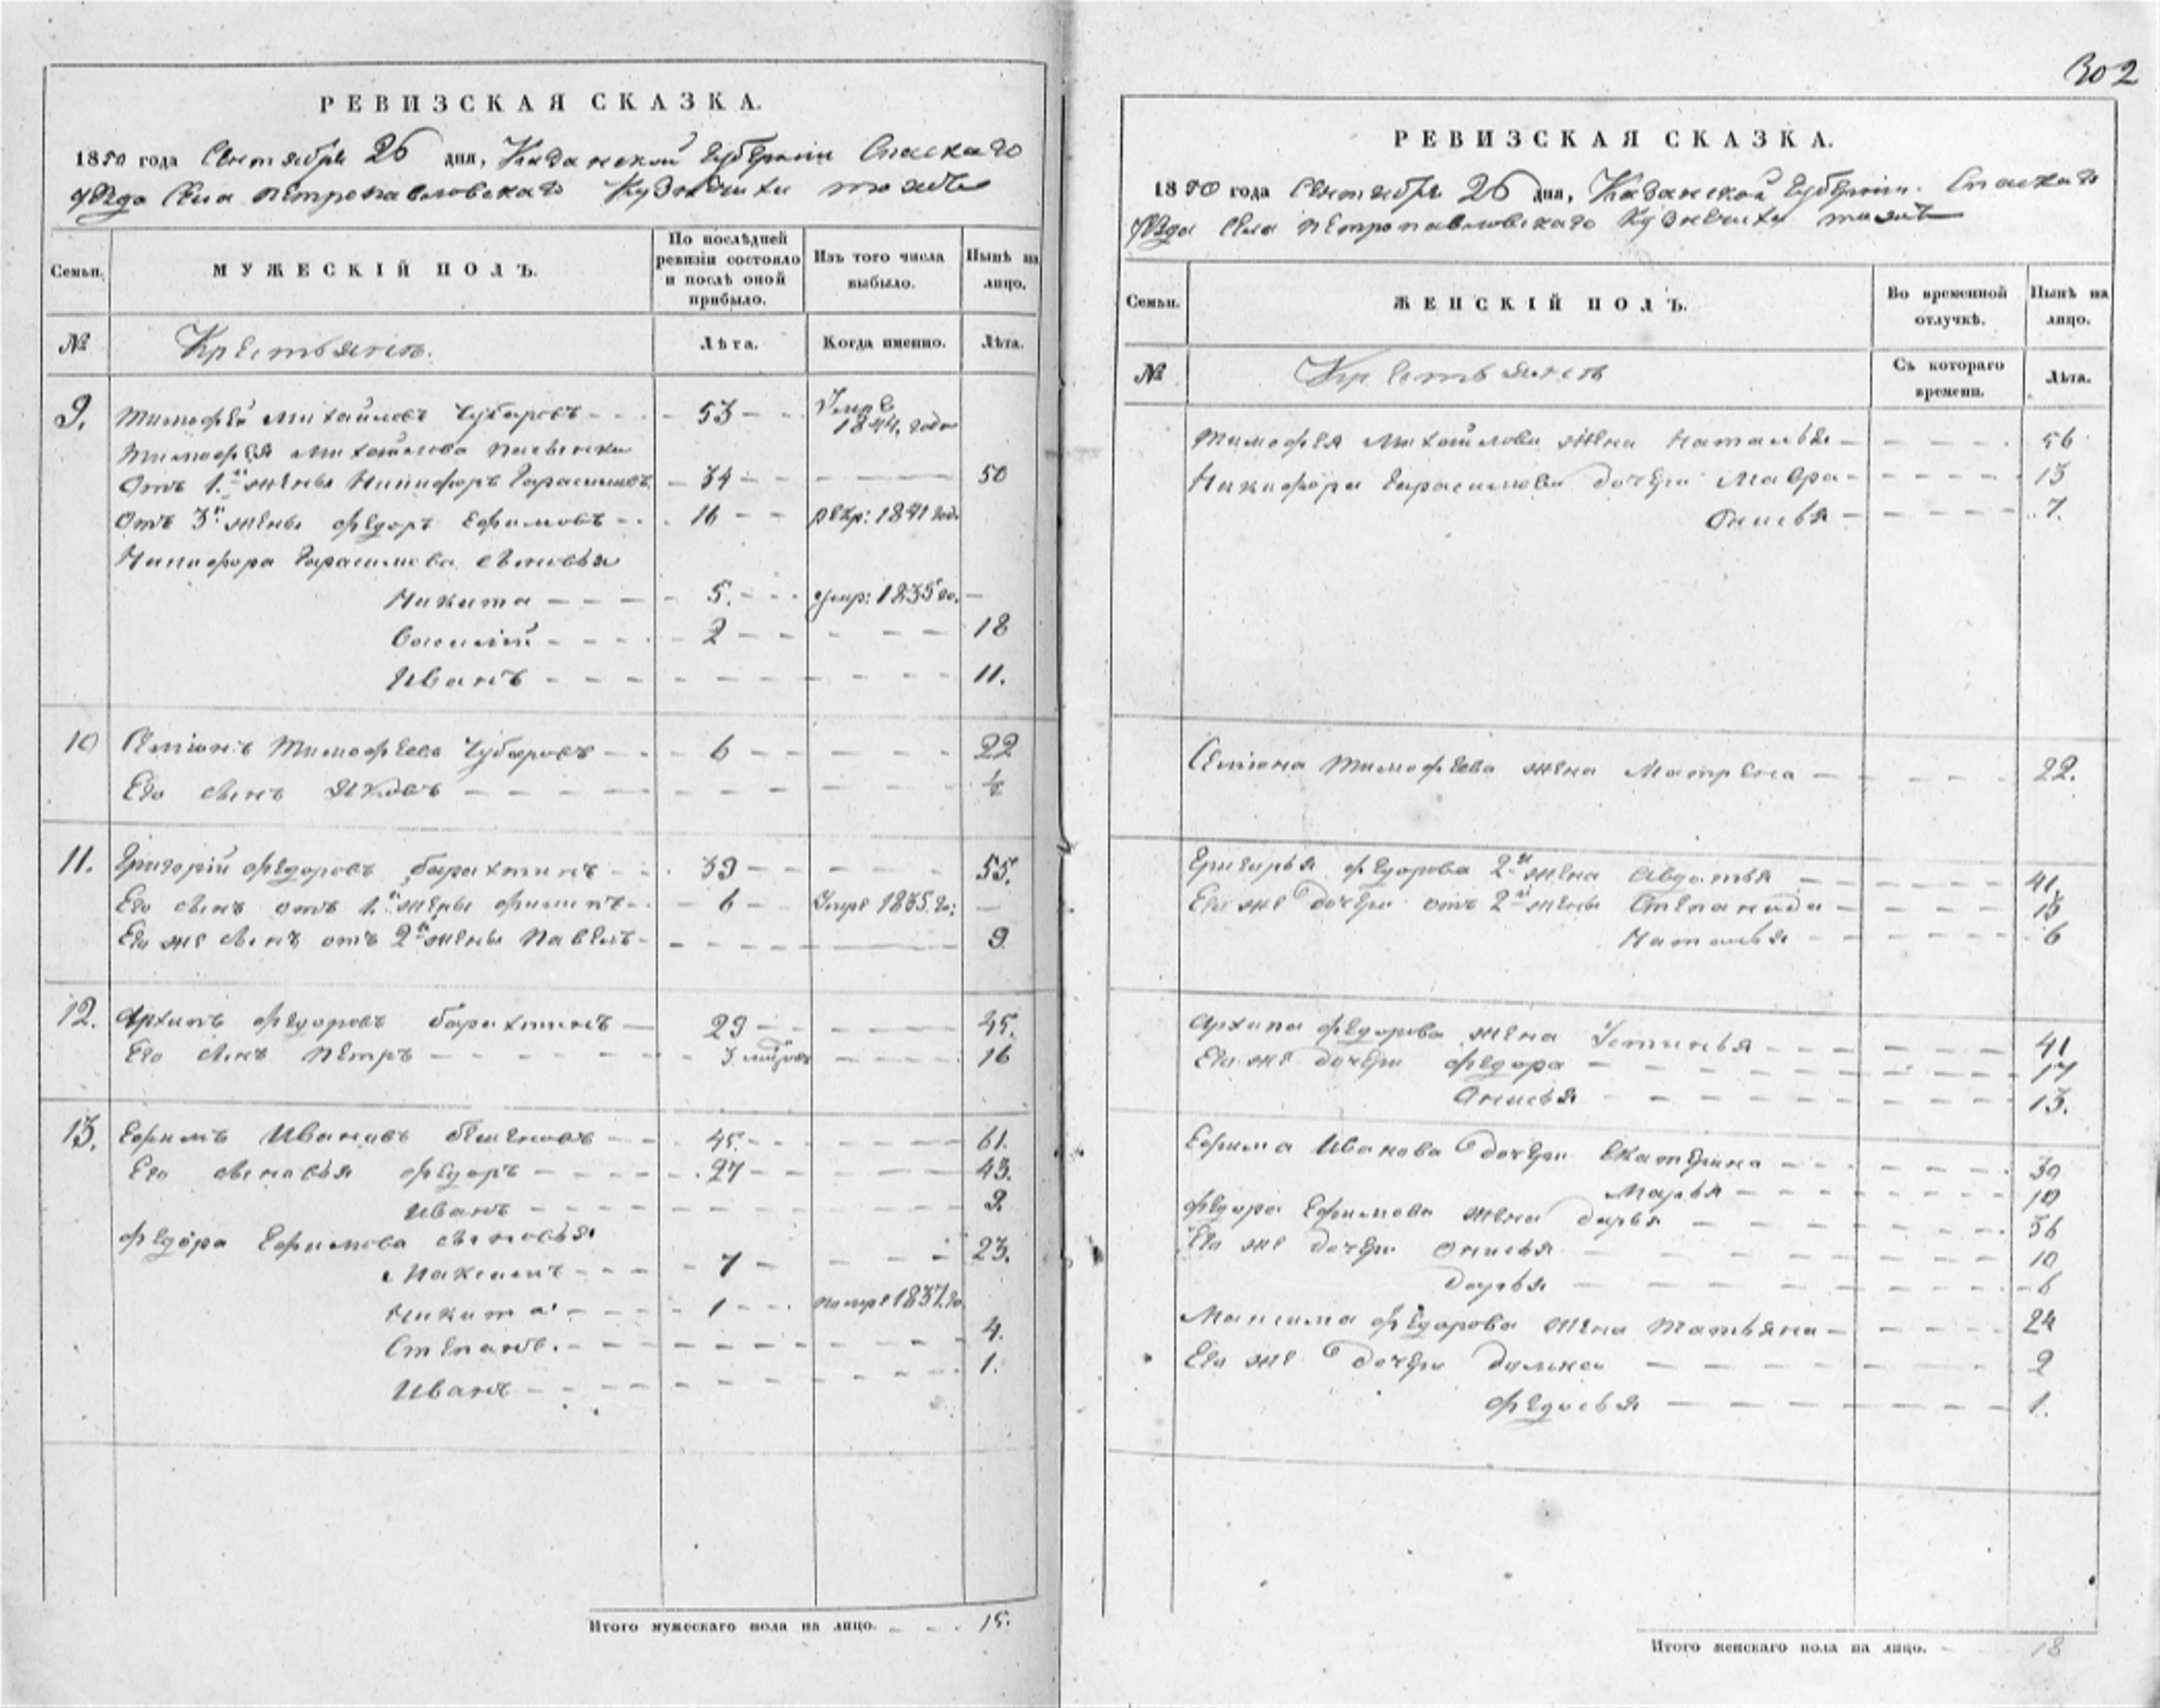 РЕВИЗСКАЯ СКАЗКА.
1850 года Сентября 26 дня, Казанской Губерніи Спаскаго
уѣзда Села Петропавловскаго Кузнечиха тожъ
Семьи. МУЖЕСКІЙ ПОЛЪ. По послѣдней ревизіи состояло и послѣ оной прибыло. Изъ того числа выбыло. Нынѣ на лицо.
№ Крестьянъ. Лѣта. Когда именно. Лѣта.
9. Тимофей Михайловъ Чубаровъ 53 Умре 1844. года
Тимофея Михайлова пасынки
Отъ 1.й жены Никифоръ Герасимовъ 34 50
Отъ 3й жены Федоръ Ефимовъ 16 рекр: 1841 год.
Никифора Герасимова сыновья
Никита 5. умр: 1835 го.
Василій 2 18
Иванъ 11.
10 Семіонъ Тимофеевъ Чубаровъ 6 22
Его сынъ Яковъ ½
11. Григорій Федоровъ Барахтинъ 39 55.
Его сынъ отъ 1.й жены Филипъ 6 Умре 1835. го:
Его же сынъ отъ 2й жены Павелъ 9
12. Архипъ Федоровъ Барахтинъ 29 45.
Его сынъ Петръ 16
13. Ефимъ Ивановъ 45. 61.
Его сыновья Федоръ 27 43.
Иванъ 9.
Федора Ефимова сыновья
Максимъ 7 23.
Никита 1 1837. го
Степанъ. 4.
Иванъ 1.
Итого мужескаго пола на лицо. 15.
302
РЕВИЗСКАЯ СКАЗКА.
1850 года Сентября 26 дня, Казанской Губерніи. Спаскаго
уѣзда Села Петропавловскаго Кузнечиха тожъ
Семьи. ЖЕНСКІЙ ПОЛЪ. Во временной отлучкѣ. Нынѣ на лицо.
№ Крестьянъ Съ котораго времени. Лѣта.
Тимофея Михайлова жена Наталья 56
Никифора Герасимова дочери Мавра 13
Онисья 7.
Семіона Тимофеева жена Матрена 22.
Григорья Федорова 2я жена Авдотья 41.
Его же дочери отъ 2й жены Степанида 13
Наталья 6
Архипа Федорова жена Устинья 41
Его же дочери Федора 17
Онисья 13.
Ефима Иванова дочери Екатерина 30
Марья 10
Федора Ефимова жена Дарья 36
Его же дочери Онисья 10
Дарья 6
Максима Федорова жена Татьяна 24
Его же дочери 2
Федосья 1.
Итого женскаго пола на лицо. 18